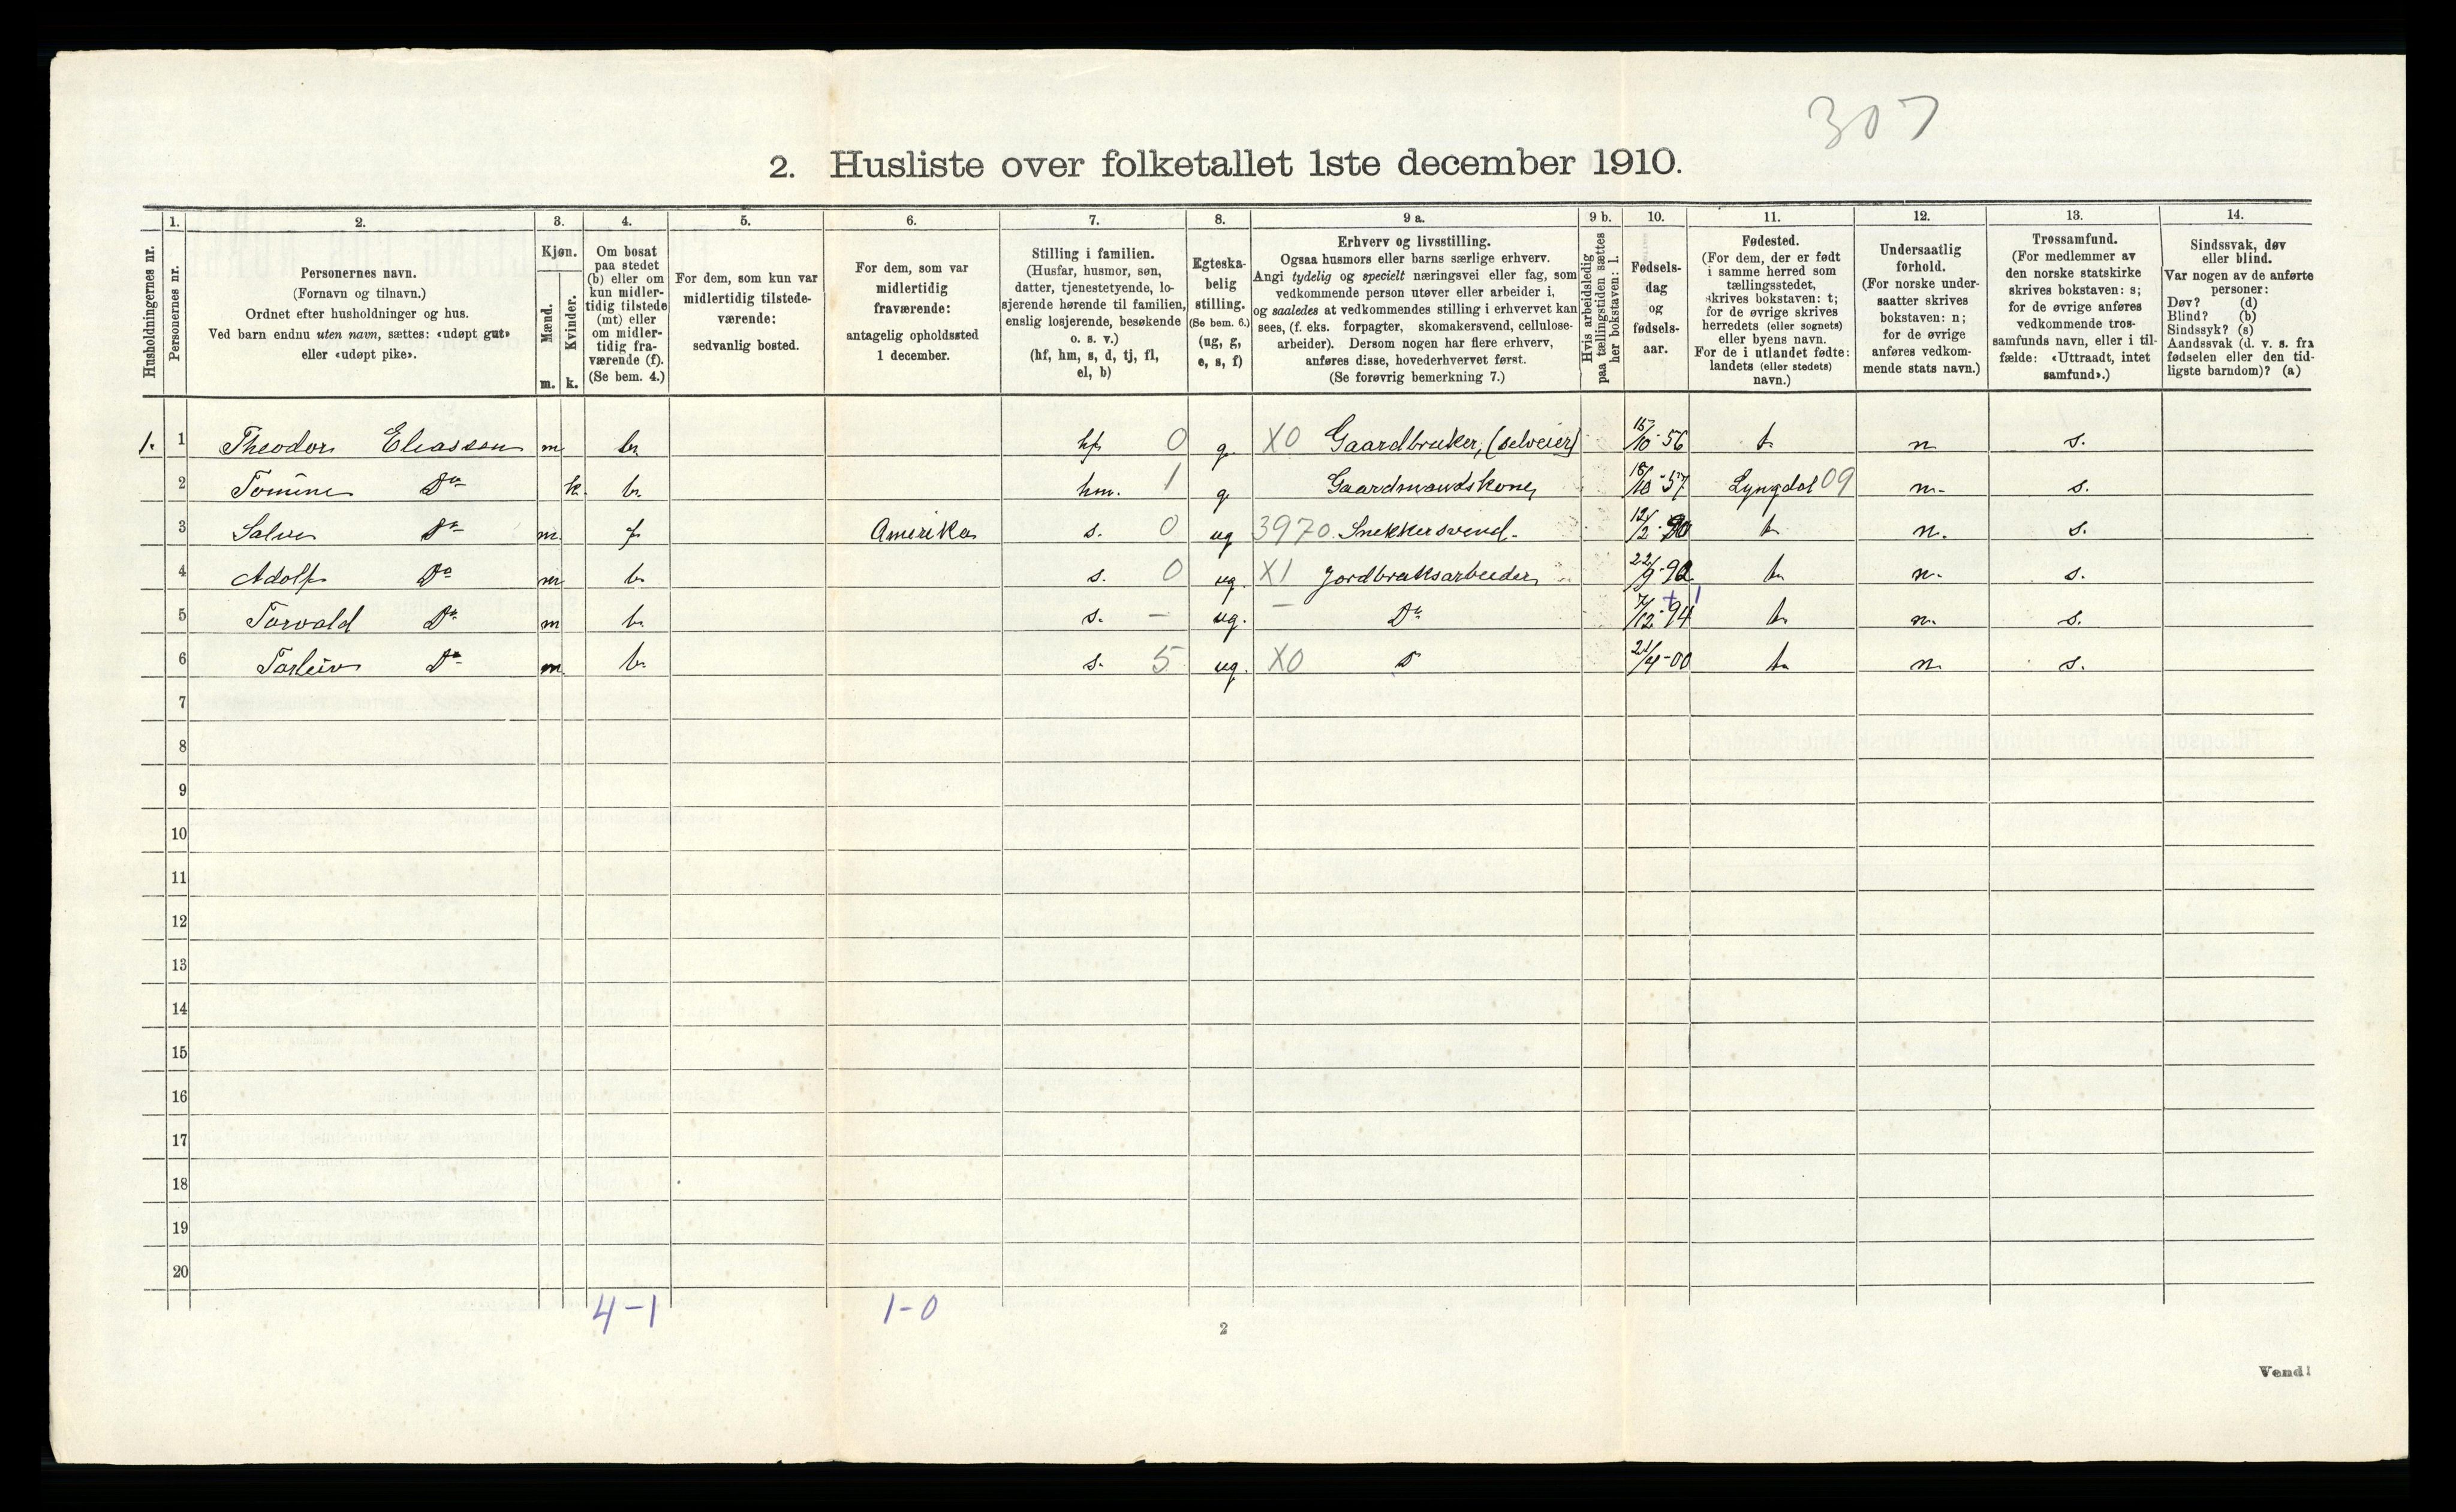 307
2. Husliste over folketallet 1ste december 1910.
Husholdningernes nr.
1.
Personernes nr.
2.
Personernes navn.
(Fornavn og tilnavn.)
Ordnet efter husholdninger og hus.
Ved barn endnu uten navn, sættes: «udøpt gut»
eller «udøpt pike».
3.
Kjøn.
Mænd.
Kvinder.
m. k.
4.
Om bosat
paa stedet
(b) eller om
kun midler-
tidig tilstede
(mt) eller
om midler-
tidig fra-
værende (f).
(Se bem. 4.)
5.
For dem, som kun var
midlertidig tilstede-
værende:
sedvanlig bosted.
6.
For dem, som var
midlertidig
fraværende:
antagelig opholdssted
1 december.
7.
Stilling i familien.
(Husfar, husmor, søn,
datter, tjenestetyende, lo-
sjerende hørende til familien,
enslig losjerende, besøkende
o. s. v.)
(hf, hm, s, d, tj, fl,
el, b)
8.
Egteska-
belig
stilling.
(Se bem. 6.)
(ug, g,
e, s, f)
9 a.
Erhverv og livsstilling.
Ogsaa husmors eller barns særlige erhverv.
Angi tydelig og specielt næringsvei eller fag, som
vedkommende person utøver eller arbeider i,
og saaledes at vedkommendes stilling i erhvervet kan
sees, (f. eks. forpagter, skomakersvend, cellulose-
arbeider). Dersom nogen har flere erhverv,
anføres disse, hovederhvervet først.
(Se forøvrig bemerkning 7.)
9 b.
Hvis arbeidsledig
paa tællingstiden sættes
her bokstaven: l.
10.
Fødsels-
dag
og
fødsels-
aar.
11.
Fødested.
(For dem, der er født
i samme herred som
tællingsstedet,
skrives bokstaven: t;
for de øvrige skrives
herredets (eller sognets)
eller byens navn.
For de i utlandet fødte:
landets (eller stedets)
navn.)
12.
Undersaatlig
forhold.
(For norske under-
saatter skrives
bokstaven: n;
for de øvrige
anføres vedkom-
mende stats navn.)
13.
Trossamfund.
(For medlemmer av
den norske statskirke
skrives bokstaven: s;
for de øvrige anføres
vedkommende tros-
samfunds navn, eller i til-
fælde: «Uttraadt, intet
samfund».)
14.
Sindssvak, døv
eller blind.
Var nogen av de anførte
personer:
Døv? (d)
Blind? (b)
Sindssyk? (s)
Aandssvak (d. v. s. fra
fødselen eller den tid-
ligste barndom)? (a)
1. 1 Theodor Eliassen m b. hf 0 g. X0 Gaardbruker, (selveier) 15/10-56 t. n s.
2 Tomine Do k. b. hm. 1 g. Gaardmandskone 18/10-57 Lyngdal 09 n. s.
3 Salve Do m. f Amerika s. 0 ug 3970. Snekkersvend. 12/2-90 t. n. s.
4 Adolf Do m b. s. 0 ug. X1 Jordbruksarbeider 22/9-92 t. n. s.
5 Torvald Do m b. s. - ug. - Do 7/12-94 + 1 t. n. s.
6 Torleiv Do m. b. s. 5 ug. X0 D 21/4-00 t. n. s.
7
8
9
10
11
12
13
14
15
16
17
18
19
20
4-1 1-0
2
Vend!